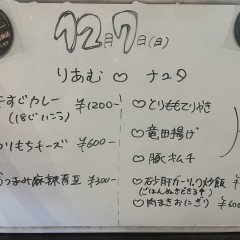 12月7日(日)
りあむ♡ナユタ
すじカレー ¥1200-
(18じいこう)
りもちチーズ ¥600-
おつまみ麻辣青豆 ¥300-
♡とりももてりやき
♡竜田揚げ
♡豚キムチ
♡砂肝ガーリック炒飯
(ごはんぬきできます)
♡肉まきおにぎり ¥600